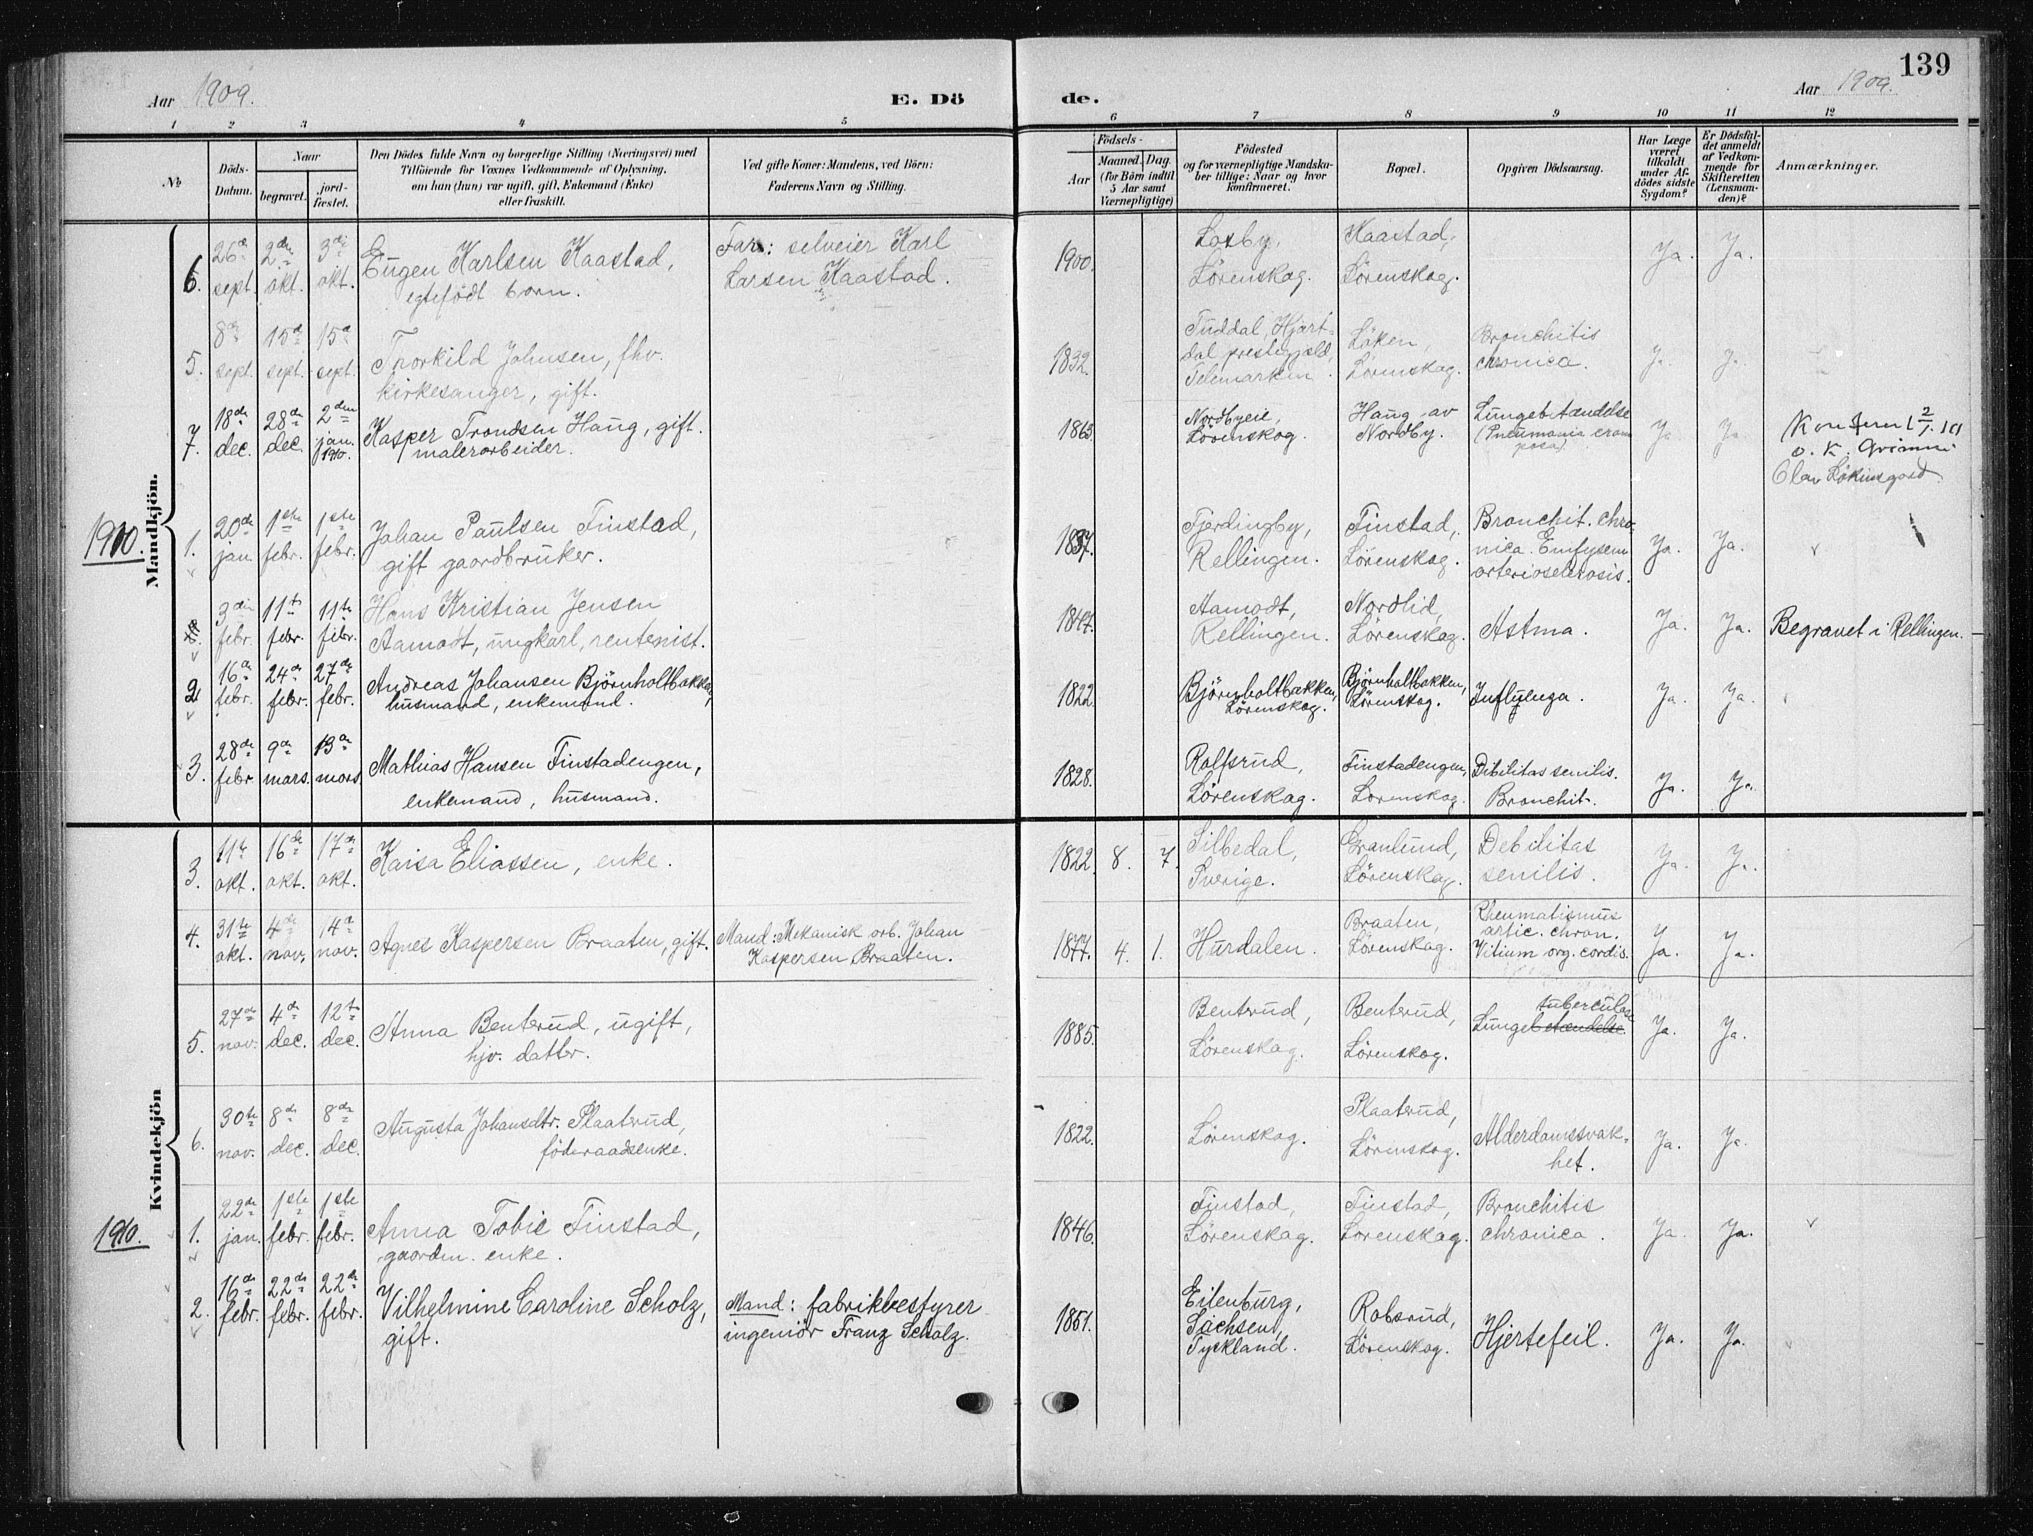 139
Aar 1909.
E. Dö
de.
Aar 1909.
1 2 3 4 5 6 7 8 9 10 11 12
№
Döds-
Datum.
Naar
begravet.
jord-
fæstet.
Den Dödes fulde Navn og borgerlige Stilling (Næringsvei) med
Tilföiende for Voxnes Vedkommende af Oplysning,
om han (hun) var ugift, gift, Enkemand (Enke)
eller fraskilt.
Ved gifte Koner: Mandens, ved Börn:
Faderens Navn og Stilling.
Födsels-
Aar
Maaned. Dag.
(for Börn indtil
5 Aar samt
Værnepligtige)
Födested
og for værnepligtige Mandska-
ber tillige: Naar og hvor
konfirmeret.
Bopæl.
Opgiven Dödsaarsag.
Har Læge
været
tilkaldt
under Af-
dödes sidste
Sygdom?
Er Dödsfal-
det anmeldt
af Vedkom-
mende for
Skifteretten
(Lensman-
den)?
Anmærkninger.
Mandkjön.
6. 26de sept. 2den okt. 3die okt. Eugen Karlsen Kaastad, egtefödt barn. Far: selveier Karl Larsen Kaastad. 1900. Losby, Lörenskog. Kaastad, Lörenskog. Ja. Ja.
5. 8de sept. 15de sept. 15de sept. Thorkild Johnsen, fhv. kirkesanger, gift. 1832. Tuddal, Hjartdal prestegjeld, Telemarken. Löken, Lörenskog. Bronchitis chronica. Ja. Ja.
7. 18de dec. 28de dec. 2den jan. 1910. Kasper Trondsen Haug, gift. malerarbeider. 1863. Nordbyeie, Lörenskog. Haug av Nordby. Lungebetændelse (Pneumonia crouposa). Ja Ja
o. K.
Olav
1910.
1. 20de jan. 1ste febr. 1ste febr. Johan Paulsen Finstad, gift gaardbruker. 1837. Fjerdingby, Rellingen. Finstad, Lörenskog. Bronchit. chronica. Emfysem arteriosclerosis. Ja. Ja.
3die febr. 11te febr. 11te febr. Hans Kristian Jensen Aamodt, ungkarl, rentenist. Aamodt, Rellingen. Nordlid, Lörenskog. Astma. Ja. Ja. Begravet i Rellingen.
2 16de febr. 24de febr. 27de febr. Andreas Johansen Björnholtbakken, husmand, enkemand. 1822. Björnholtbakken, Lörenskog. Björnholtbakken, Lörenskog. Influenza. Ja. Ja.
3. 28de febr. 9de mars. 13de mars Mathias Hansen Finstadengen, enkemand, husmand. 1828. Rolfsrud, Lörenskog. Finstadengen, Lörenskog. Debilitas senilis. Bronchit. Ja. Ja.
Kvindekjön
3. 11te okt. 16de okt. 17de okt. Kaisa Eliassen, enke. 1822. 8. 7. Silbedal, Sverige. Granlund, Lörenskog. Debilitas senilis. Ja. Ja.
4. 31te okt. 4de nov. 14de nov. Agnes Kaspersen Braaten, gift. Mand: Mekanisk arb. Johan Kaspersen Braaten. 1877. 4. 1. Hurdalen. Braaten, Lörenskog. Rheumatismus artic. chron. Vitium org. cordis. Ja. Ja.
5. 27de nov. 4de dec. 12te dec. Anna Benterud, ugift, hjv. datter. 1885. Benterud, Lörenskog. Benterud, Lörenskog. Lungebetændelse tuberculose Ja. Ja.
6. 30te nov. 8de dec. 8de dec. Augusta Johansdtr. Plaaterud, föderaadsenke. 1822. Lörenskog. Plaaterud, Lörenskog. Alderdomssvakhet. Ja. Ja.
1910.
1. 22de jan. 1ste febr. 1ste febr. Anna Tobie Finstad, gaardm. enke. 1846. Finstad, Lörenskog. Finstad, Lörenskog. Bronchitis chronica. Ja. Ja.
2. 16de febr. 22de febr. 22de febr. Vilhelmine Caroline Scholz, gift. Mand: fabrikbestyrer ingeniör Franz Scholz. 1851. Eilenburg, Sachsen, Tyskland. Robsrud, Lörenskog. Hjertefeil. Ja. Ja.